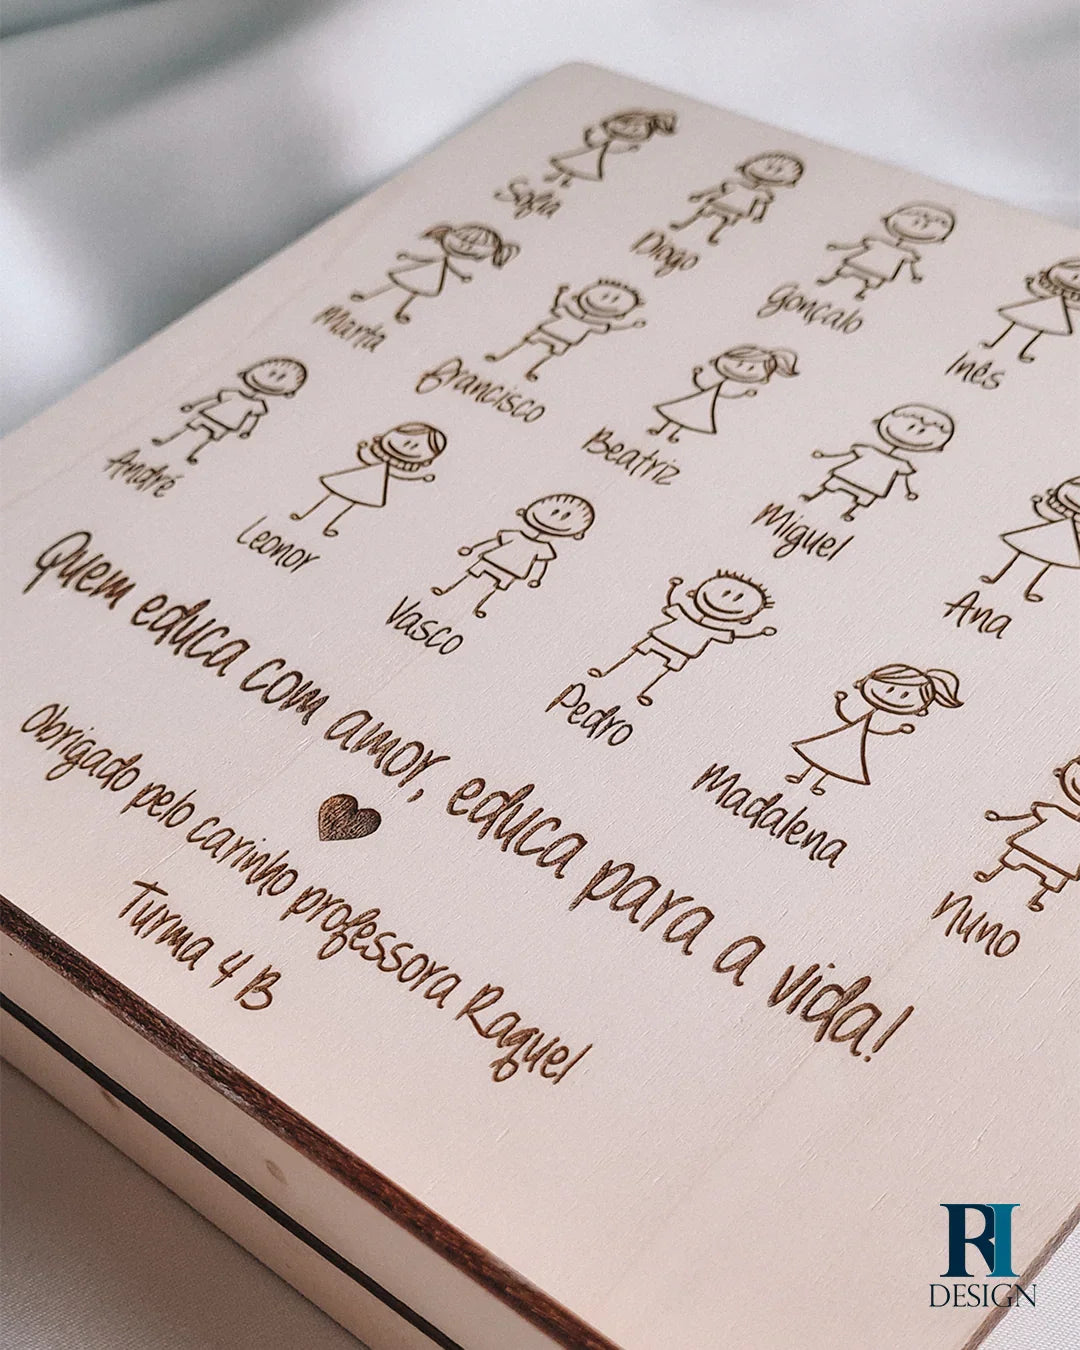 Sofia
Diogo
Gonçalo
Inês
Marta
Francisco
Beatriz
Miguel
Ana
André
Leonor
Vasco
Pedro
Madalena
Nuno
Quem educa com amor, educa para a vida!
Obrigado pelo carinho professora Raquel
Turma 4 B
RI
DESIGN